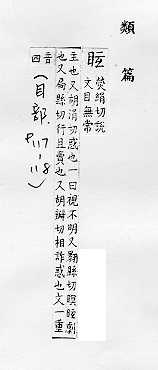 類篇
眩 熒絹切說
文目無常
主也又胡涓切惑也一曰視不明又翾縣切瞑眩劇
也又局縣切行且賣也又胡辨切相詐惑也文一重
音四
(目部. P.117-118)